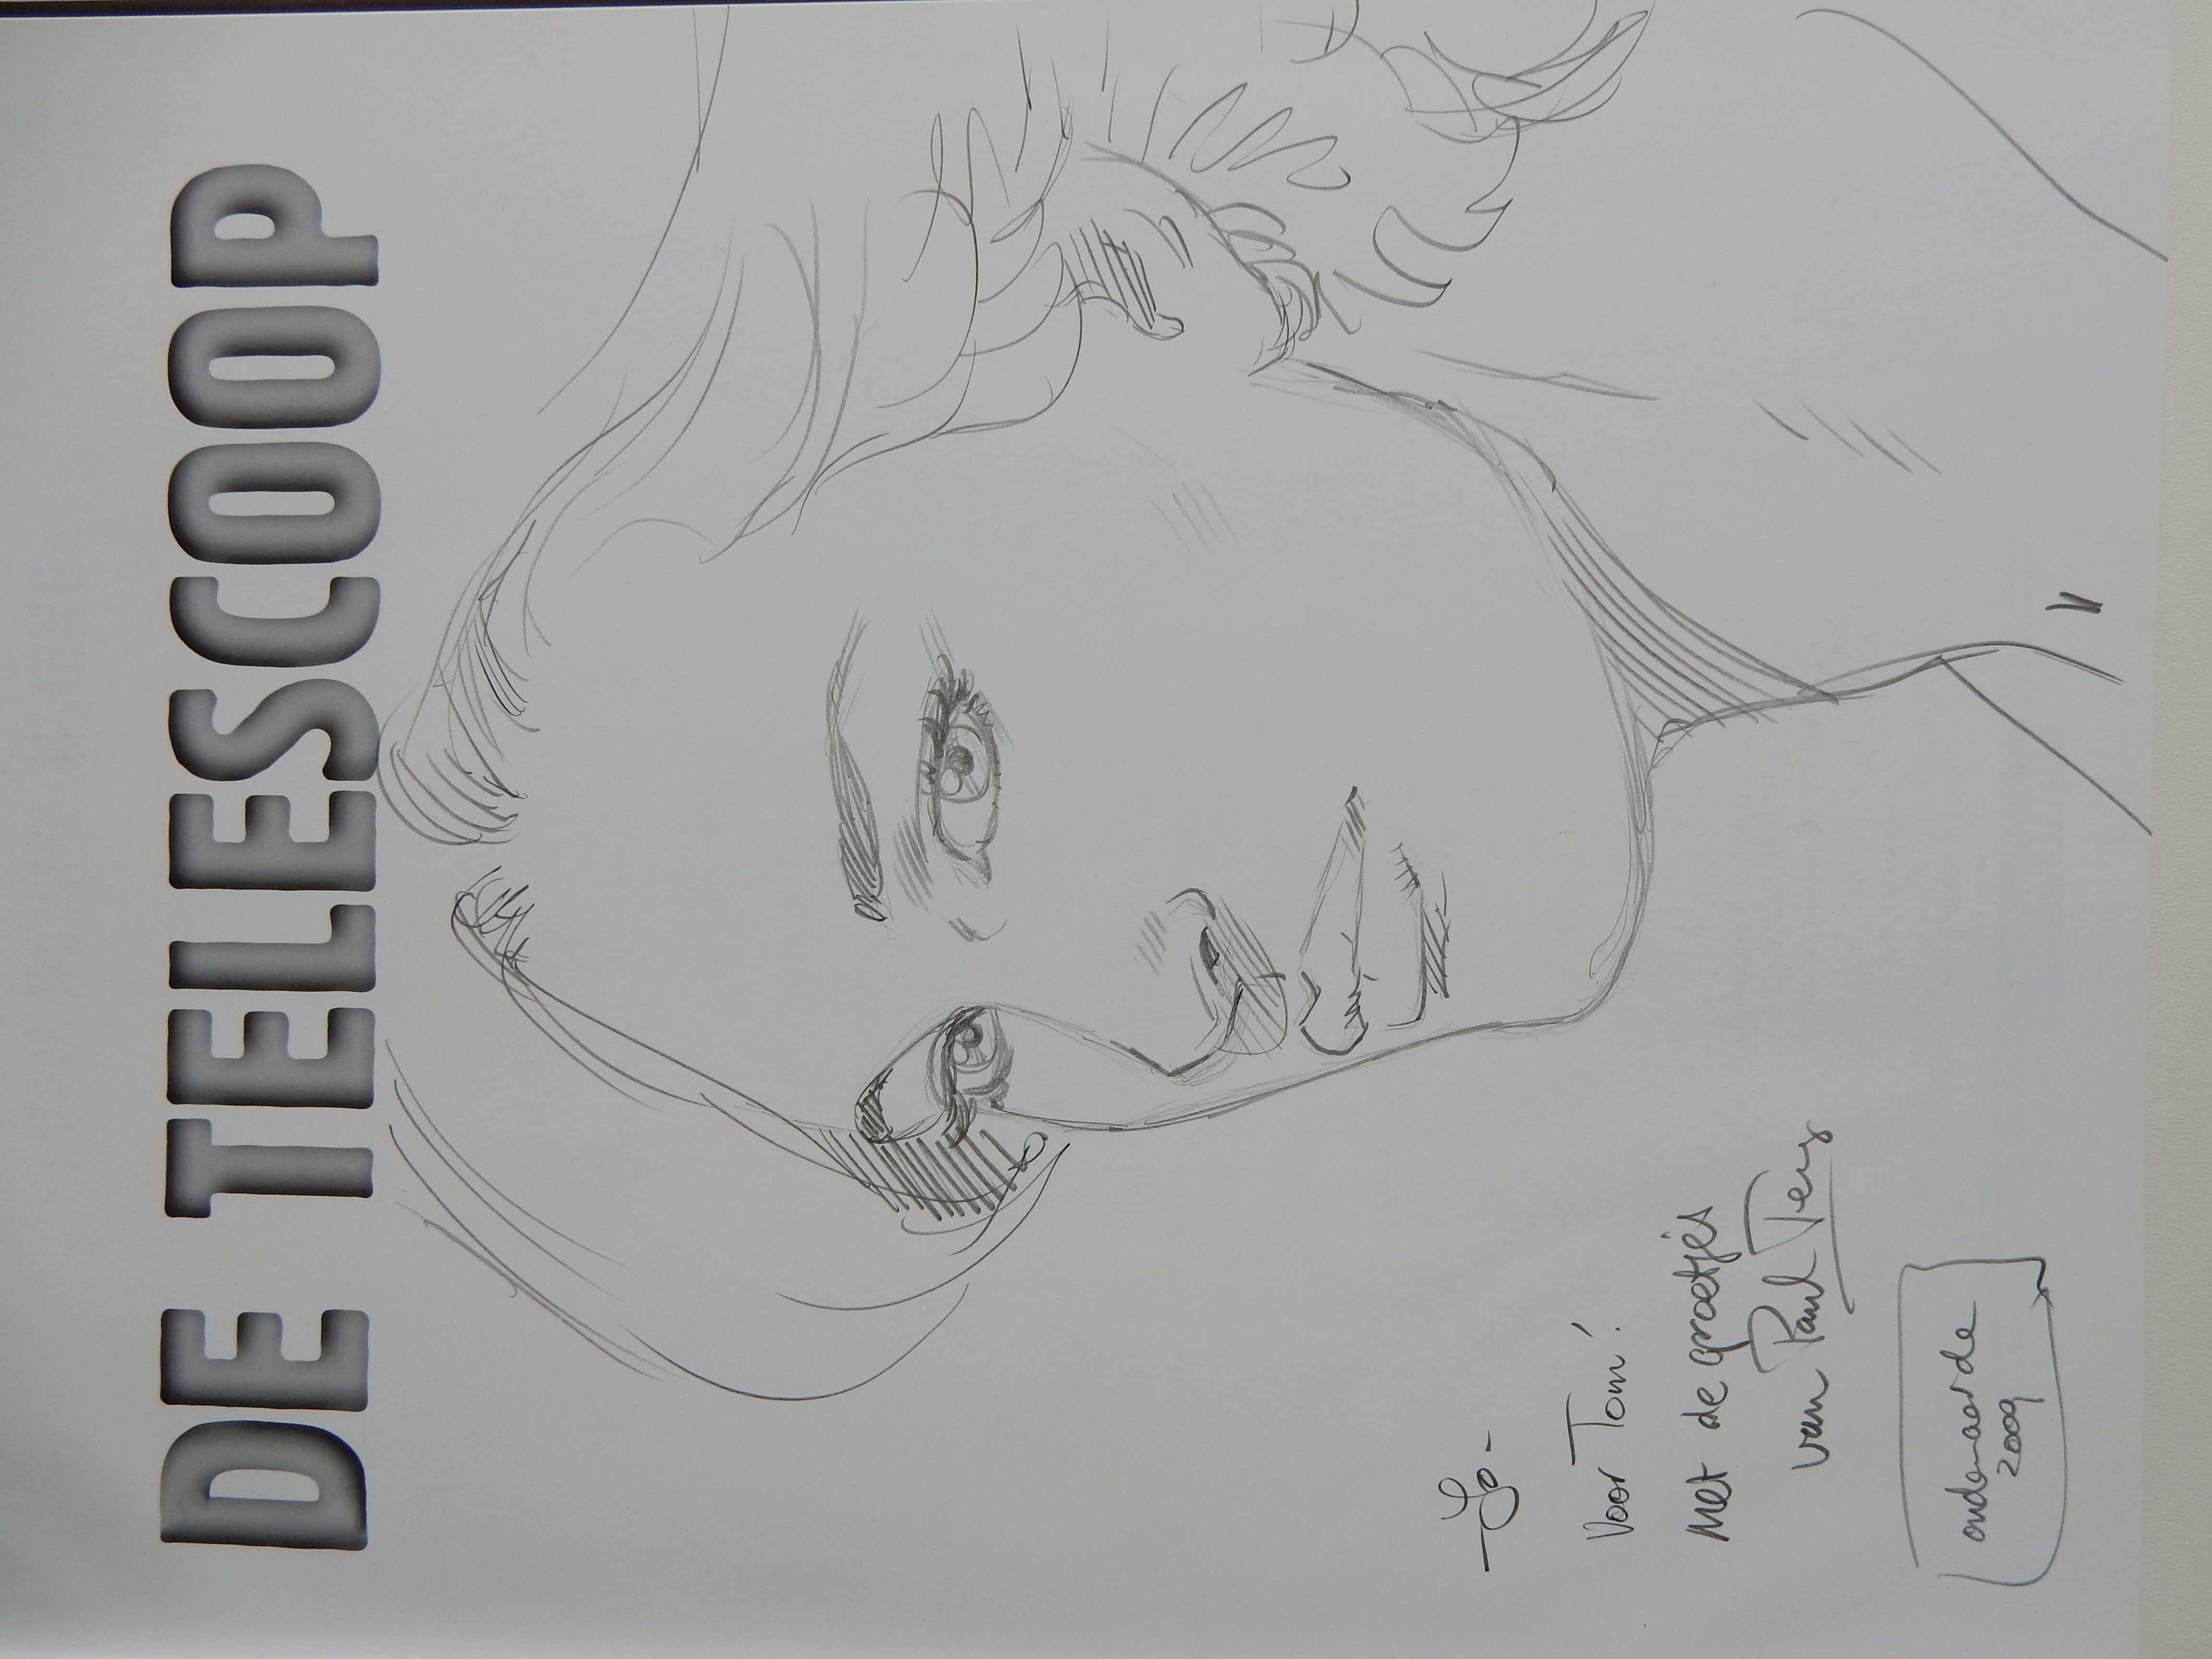 DE TELESCOOP
-Jo-
Voor Tom!
Met de groetjes
van Paul Teng
oudenaarde
2009